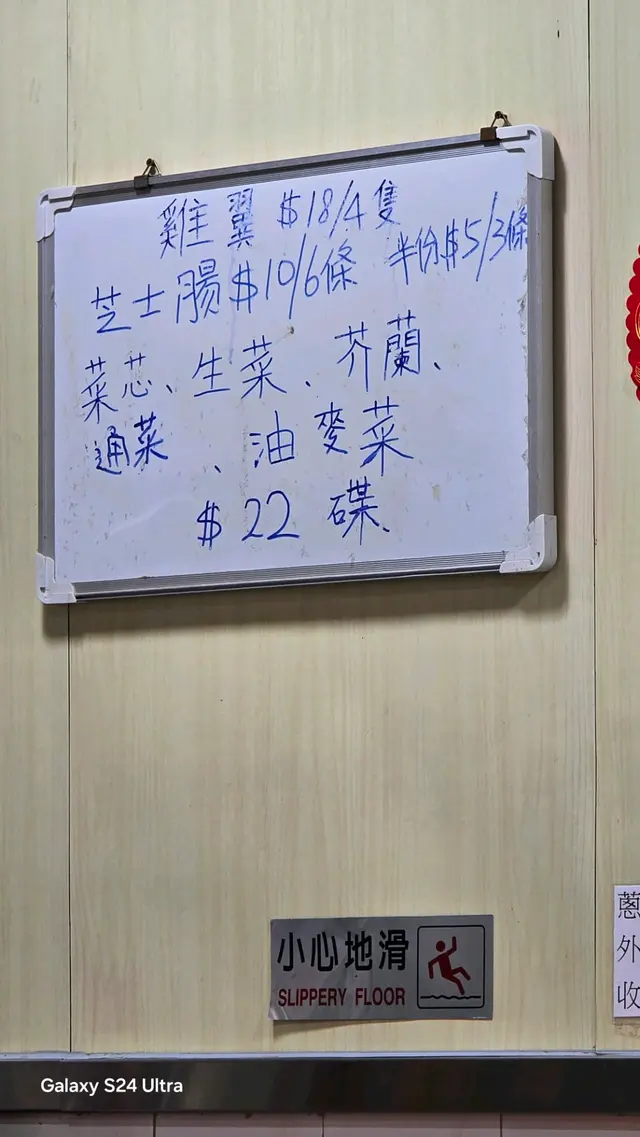 雞翼 $18/4隻
芝士腸$10/6條 半份$5/3條
菜芯、生菜、芥蘭、
通菜、油麥菜
$22 碟
小心地滑
SLIPPERY FLOOR
蔥
外
收
Galaxy S24 Ultra